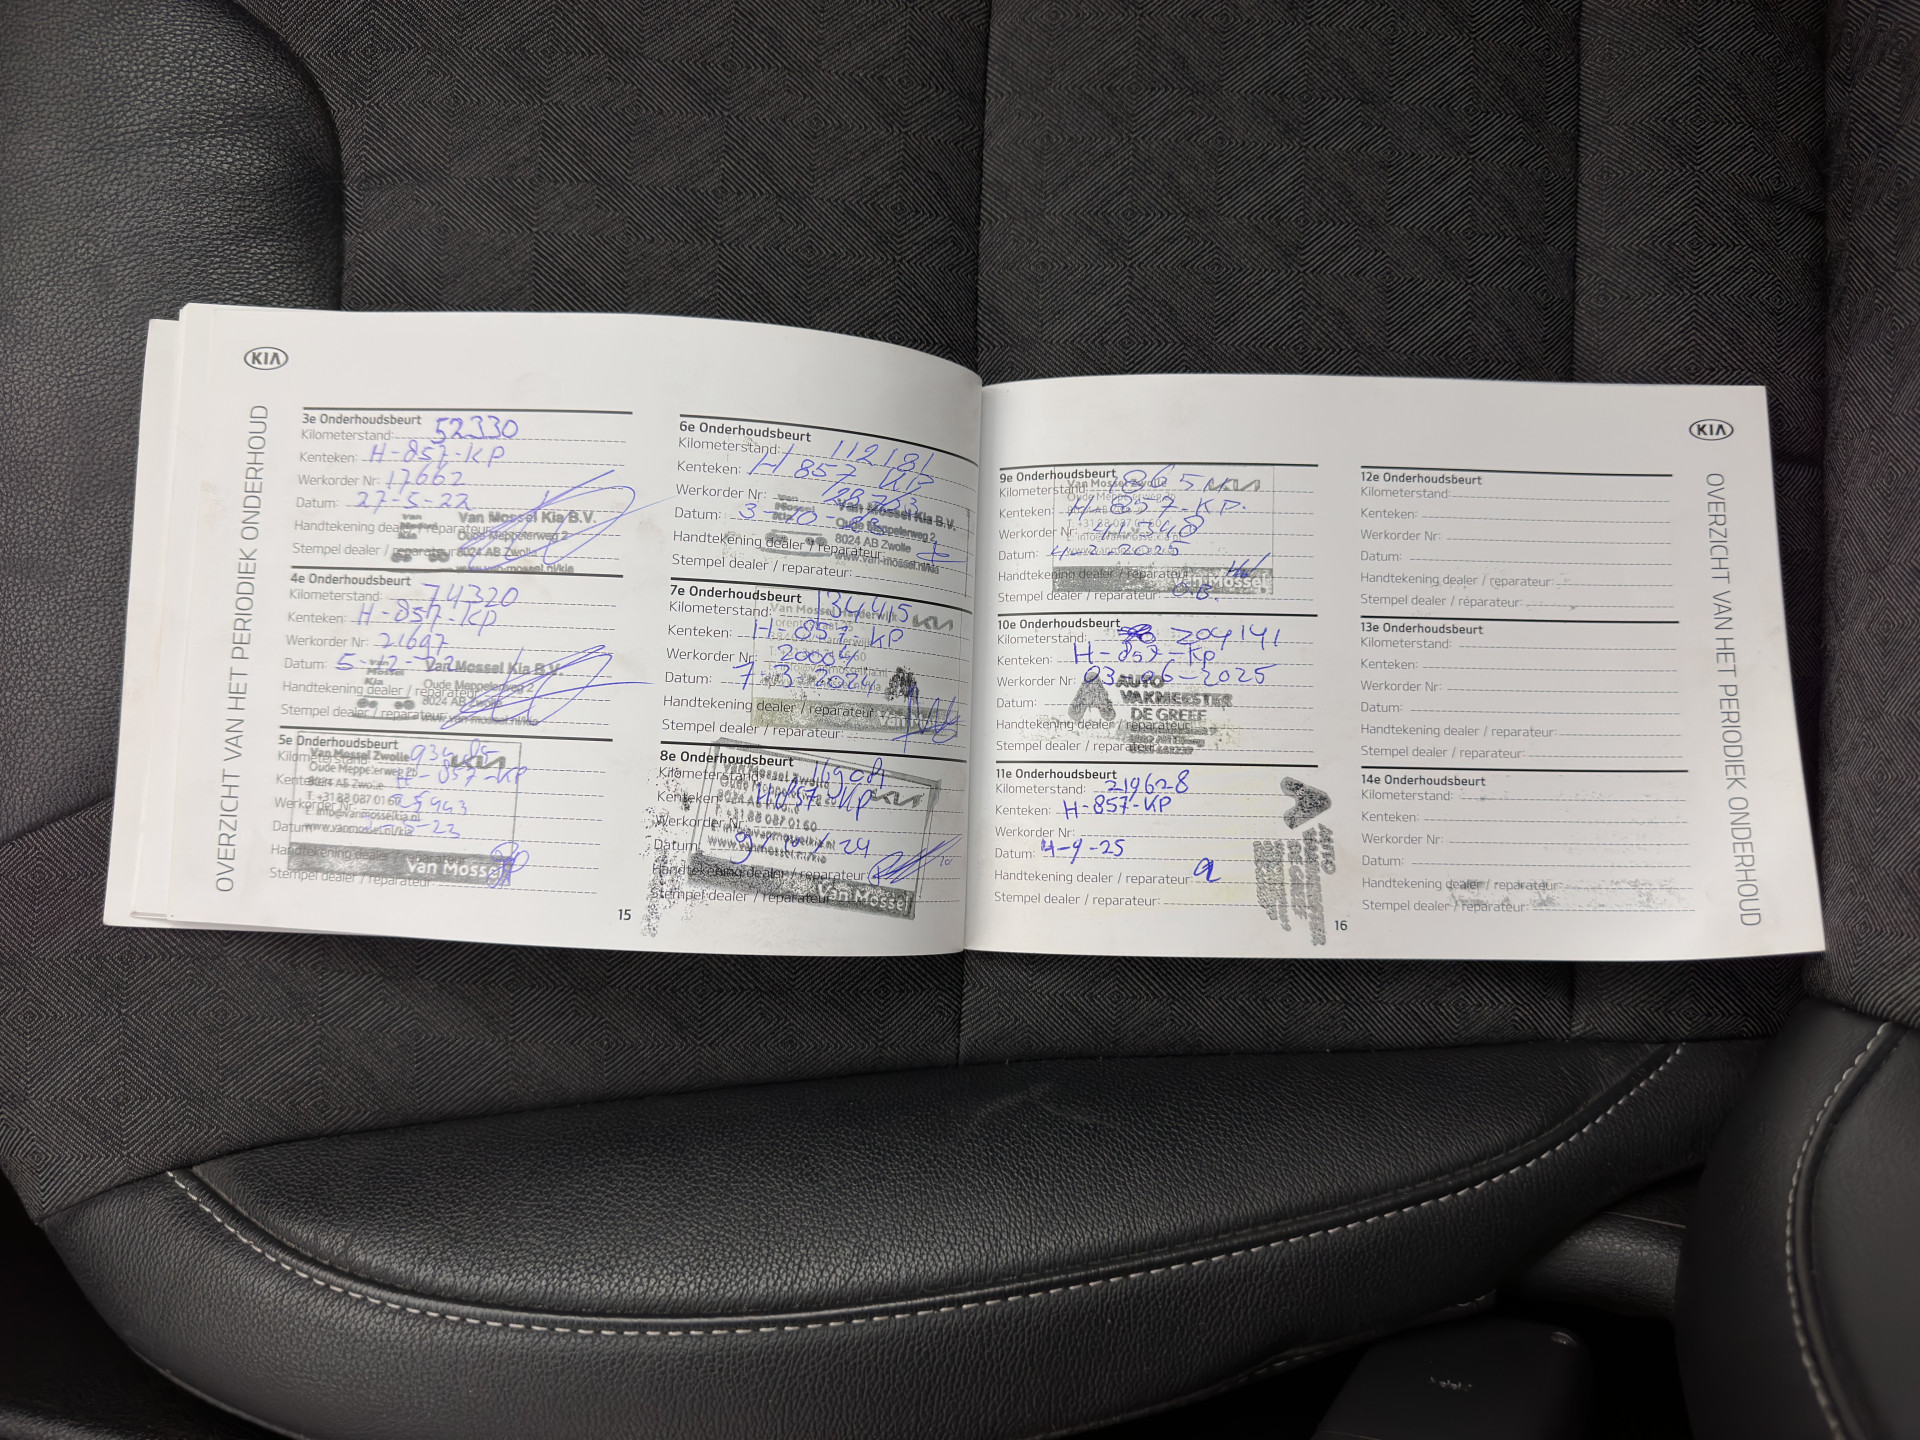 KIA
OVERZICHT VAN HET PERIODIEK ONDERHOUD
3e Onderhoudsbeurt
Kilometerstand: 52330
Kenteken: H-857-KP
Werkorder Nr: 17662
Datum: 27-5-22
Handtekening dealer / reparateur:
Stempel dealer / reparateur:
Van Mossel Kia B.V.
Oude Meppelerweg 2
8024 AB Zwolle
www.van-mossel.nl/kia
4e Onderhoudsbeurt
Kilometerstand: 74320
Kenteken: H-857-KP
Werkorder Nr: 21697
Datum: 5-12-22
Handtekening dealer / reparateur:
Stempel dealer / reparateur:
Van Mossel Kia B.V.
Oude Meppelerweg 2
8024 AB Zwolle
www.van-mossel.nl/kia
5e Onderhoudsbeurt
Kilometerstand:
Kenteken: H-857-KP
Werkorder Nr: 25943
Datum:
Handtekening dealer / reparateur:
Stempel dealer / reparateur:
Van Mossel Zwolle
Oude Meppelerweg 2b
8024 AB Zwolle
T. +31 88 087 01 60
E. info@vanmosselkia.nl
www.vanmossel.nl/kia
KIA
Van Mossel
15
6e Onderhoudsbeurt
Kilometerstand: 112181
Kenteken: H 857 KP
Werkorder Nr:
Datum: 3-10-
Handtekening dealer / reparateur:
Stempel dealer / reparateur:
Van Mossel Kia B.V.
Oude Meppelerweg 2
8024 AB Zwolle
www.van-mossel.nl/kia
7e Onderhoudsbeurt
Kilometerstand: 134415
Kenteken: H-857-KP
Werkorder Nr: 20004
Datum: 7-3-2024
Handtekening dealer / reparateur:
Stempel dealer / reparateur:
Van Mossel Harderwijk
KIA
Van Mossel
8e Onderhoudsbeurt
Kilometerstand:
Kenteken: H857-KP
Werkorder Nr:
Datum: 9/10/24
Handtekening dealer / reparateur:
Stempel dealer / reparateur:
Van Mossel Zwolle
Oude Meppelerweg 2b
8024 AB Zwolle
T. +31 88 087 01 60
E. info@vanmosselkia.nl
www.vanmossel.nl/kia
KIA
Van Mossel
9e Onderhoudsbeurt
Kilometerstand:
Kenteken: H-857-KP.
Werkorder Nr:
Datum:
Handtekening dealer / reparateur:
Stempel dealer / reparateur:
Van Mossel Zwolle
Oude Meppelerweg 2b
KIA
Van Mossel
10e Onderhoudsbeurt
Kilometerstand: 204141
Kenteken: H-857-KP
Werkorder Nr: 03-06-2025
Datum:
Handtekening dealer / reparateur:
Stempel dealer / reparateur:
AUTO
VAKMEESTER
DE GREEF
11e Onderhoudsbeurt
Kilometerstand: 219628
Kenteken: H-857-KP
Werkorder Nr:
Datum: 4-9-25
Handtekening dealer / reparateur:
Stempel dealer / reparateur:
AUTO
VAKMEESTER
DE GREEF
16
12e Onderhoudsbeurt
Kilometerstand:
Kenteken:
Werkorder Nr:
Datum:
Handtekening dealer / reparateur:
Stempel dealer / reparateur:
13e Onderhoudsbeurt
Kilometerstand:
Kenteken:
Werkorder Nr:
Datum:
Handtekening dealer / reparateur:
Stempel dealer / reparateur:
14e Onderhoudsbeurt
Kilometerstand:
Kenteken:
Werkorder Nr:
Datum:
Handtekening dealer / reparateur:
Stempel dealer / reparateur:
KIA
OVERZICHT VAN HET PERIODIEK ONDERHOUD